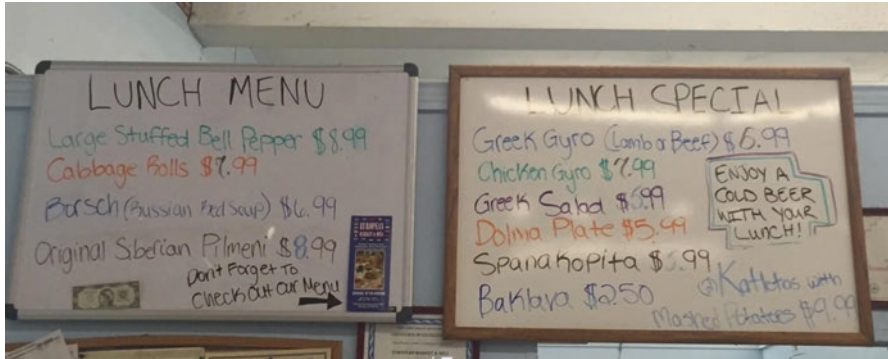 LUNCH MENU
Large Stuffed Bell Pepper $8.99
Cabbage Rolls $7.99
Borsch (Russian Red Soup) $6.99
Original Siberian Pilmeni $8.99
Don't Forget To
Check Out Our Menu
EUROPEAN
LUNCH SPECIAL
Greek Gyro (Lamb or Beef) $6.99
Chicken Gyro $7.99
Greek Salad
Dolma Plate $5.99
Spanakopita
Baklava $2.50
ENJOY A
COLD BEER
WITH YOUR
LUNCH!
Katletas with
Mashed Potatoes $9.99